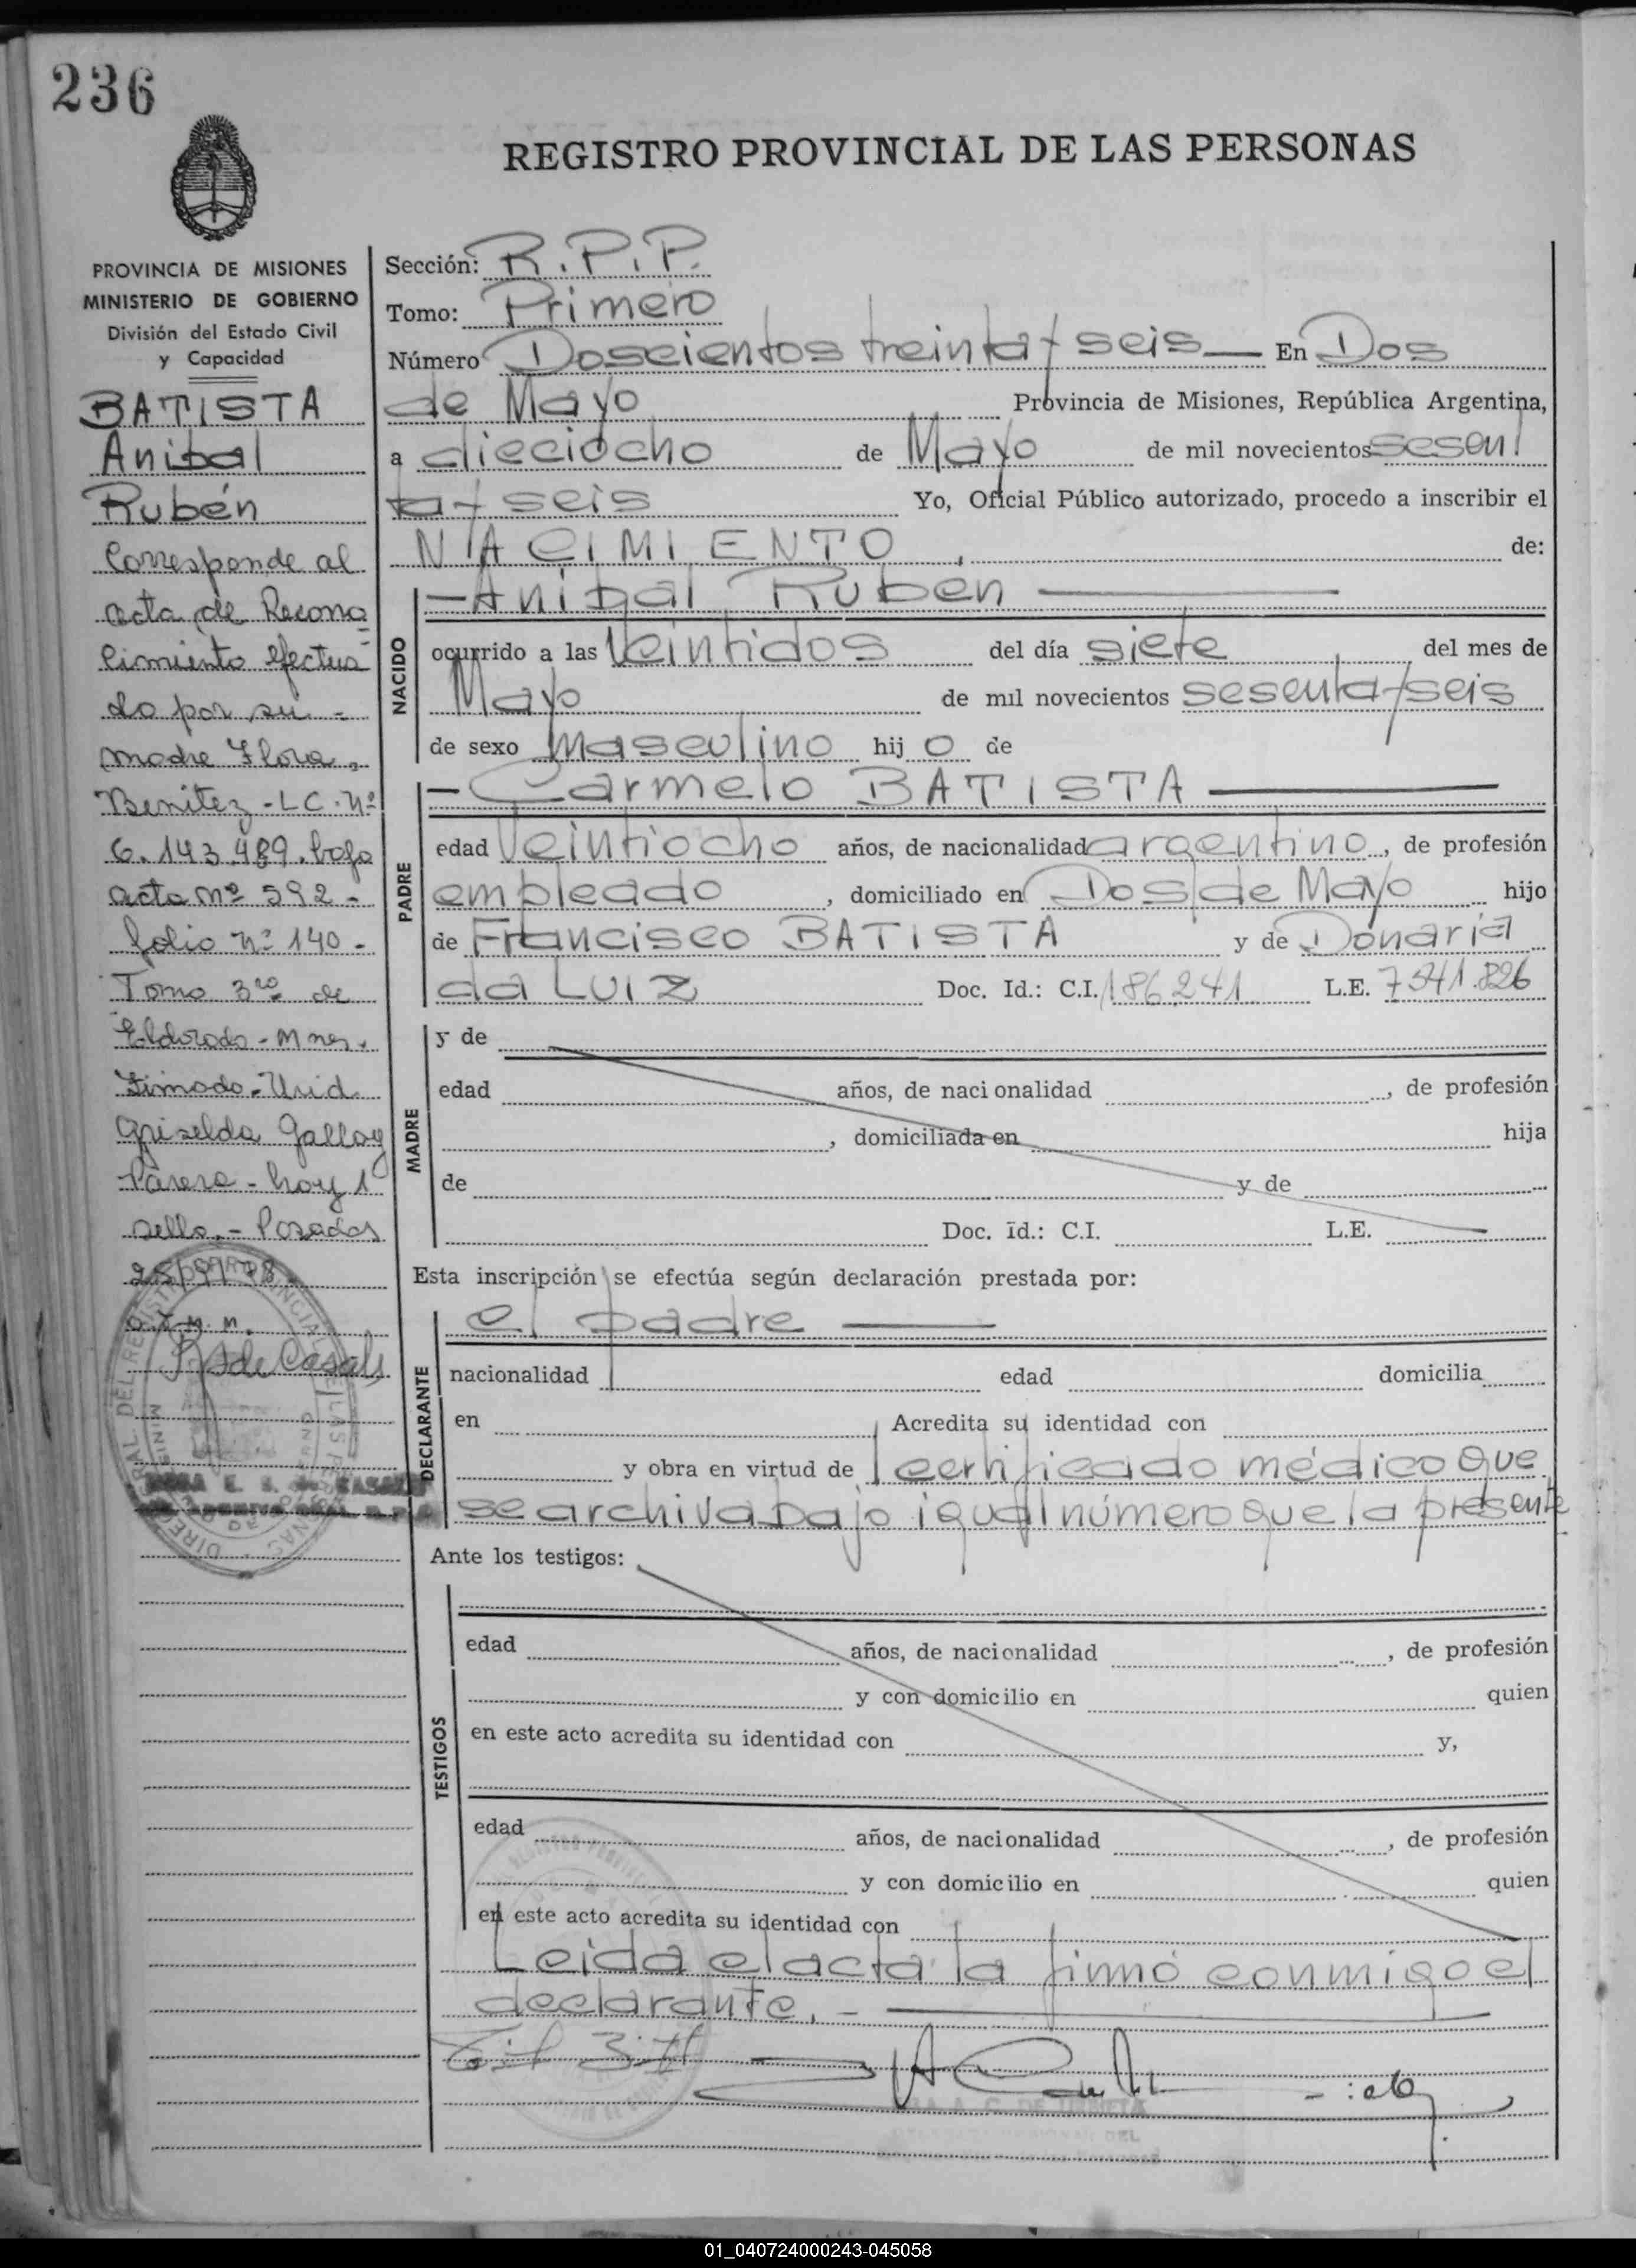 236
REGISTRO PROVINCIAL DE LAS PERSONAS
PROVINCIA DE MISIONES
MINISTERIO DE GOBIERNO
División del Estado Civil
y Capacidad
BATISTA
Anibal
Rubén
Corresponde al
acta de Recono
cimiento efectua
do por su -
madre Flora
Benitez - L C. Nº
6.143.489. bajo
acta nº 592 -
folio nº 140 -
Tomo 3ro de
Eldorado - Mnes.
Firmado - Urid
Griselda Galloy
Parera - hoy 1
sello. - Posadas
de Casals
Sección: R.P.P.
Tomo: Primero
Número Doscientos treinta y seis — En Dos
de Mayo Provincia de Misiones, República Argentina,
a dieciocho de Mayo de mil novecientos sesen
ta y seis Yo, Oficial Público autorizado, procedo a inscribir el
NACIMIENTO, de:
NACIDO
— Anibal Ruben —
ocurrido a las veintidos del día siete del mes de
Mayo de mil novecientos sesenta y seis
de sexo masculino hij o de
PADRE
— Carmelo BATISTA —
edad veintiocho años, de nacionalidad argentino, de profesión
empleado, domiciliado en Dos de Mayo hijo
de Francisco BATISTA y de Donaria
da LUIZ Doc. Id.: C.I. 186241 L.E. 7541.826
MADRE
y de
edad años, de nacionalidad , de profesión
, domiciliada en hija
de y de
Doc. id.: C.I. L.E.
Esta inscripción se efectúa según declaración prestada por:
DECLARANTE
el padre —
nacionalidad edad domicilia
en Acredita su identidad con
y obra en virtud de certificado médico que
se archiva bajo igual número que la presente
Ante los testigos:
TESTIGOS
edad años, de nacionalidad , de profesión
y con domicilio en quien
en este acto acredita su identidad con y,
edad años, de nacionalidad , de profesión
y con domicilio en quien
en este acto acredita su identidad con
Leida el acta la firmó conmigo el
declarante. - —
01_040724000243-045058